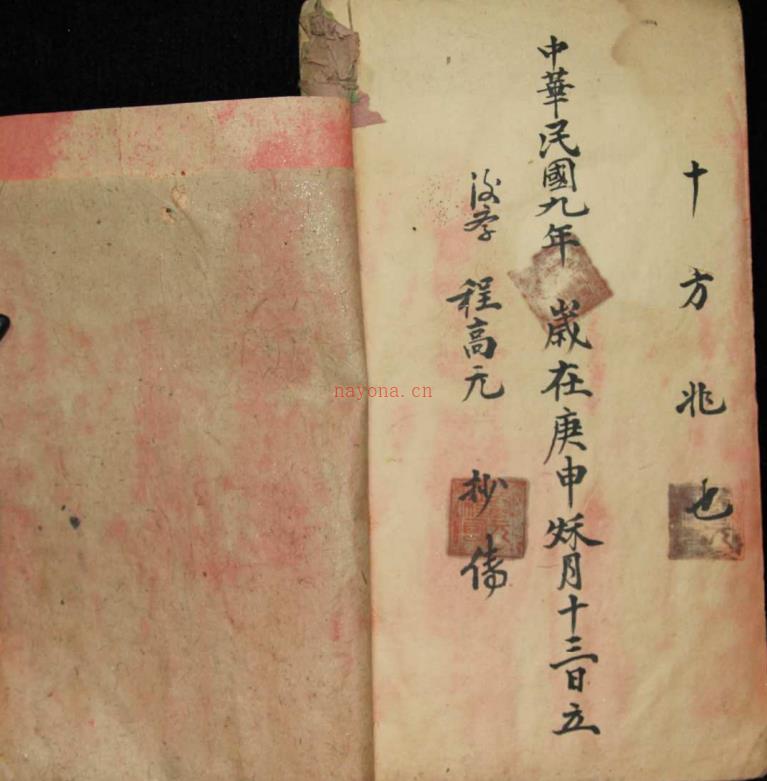 十方兆也
中華民國九年 歲在庚申秌月十三日立
後李 程高元 抄俻
nayona.cn